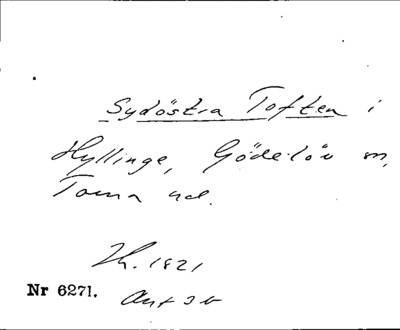 Sydöstra Toften i
Hyllinge, Gödelöv sn,
Torna hd.
Lk. 1821
Nr 6271. Akt 36